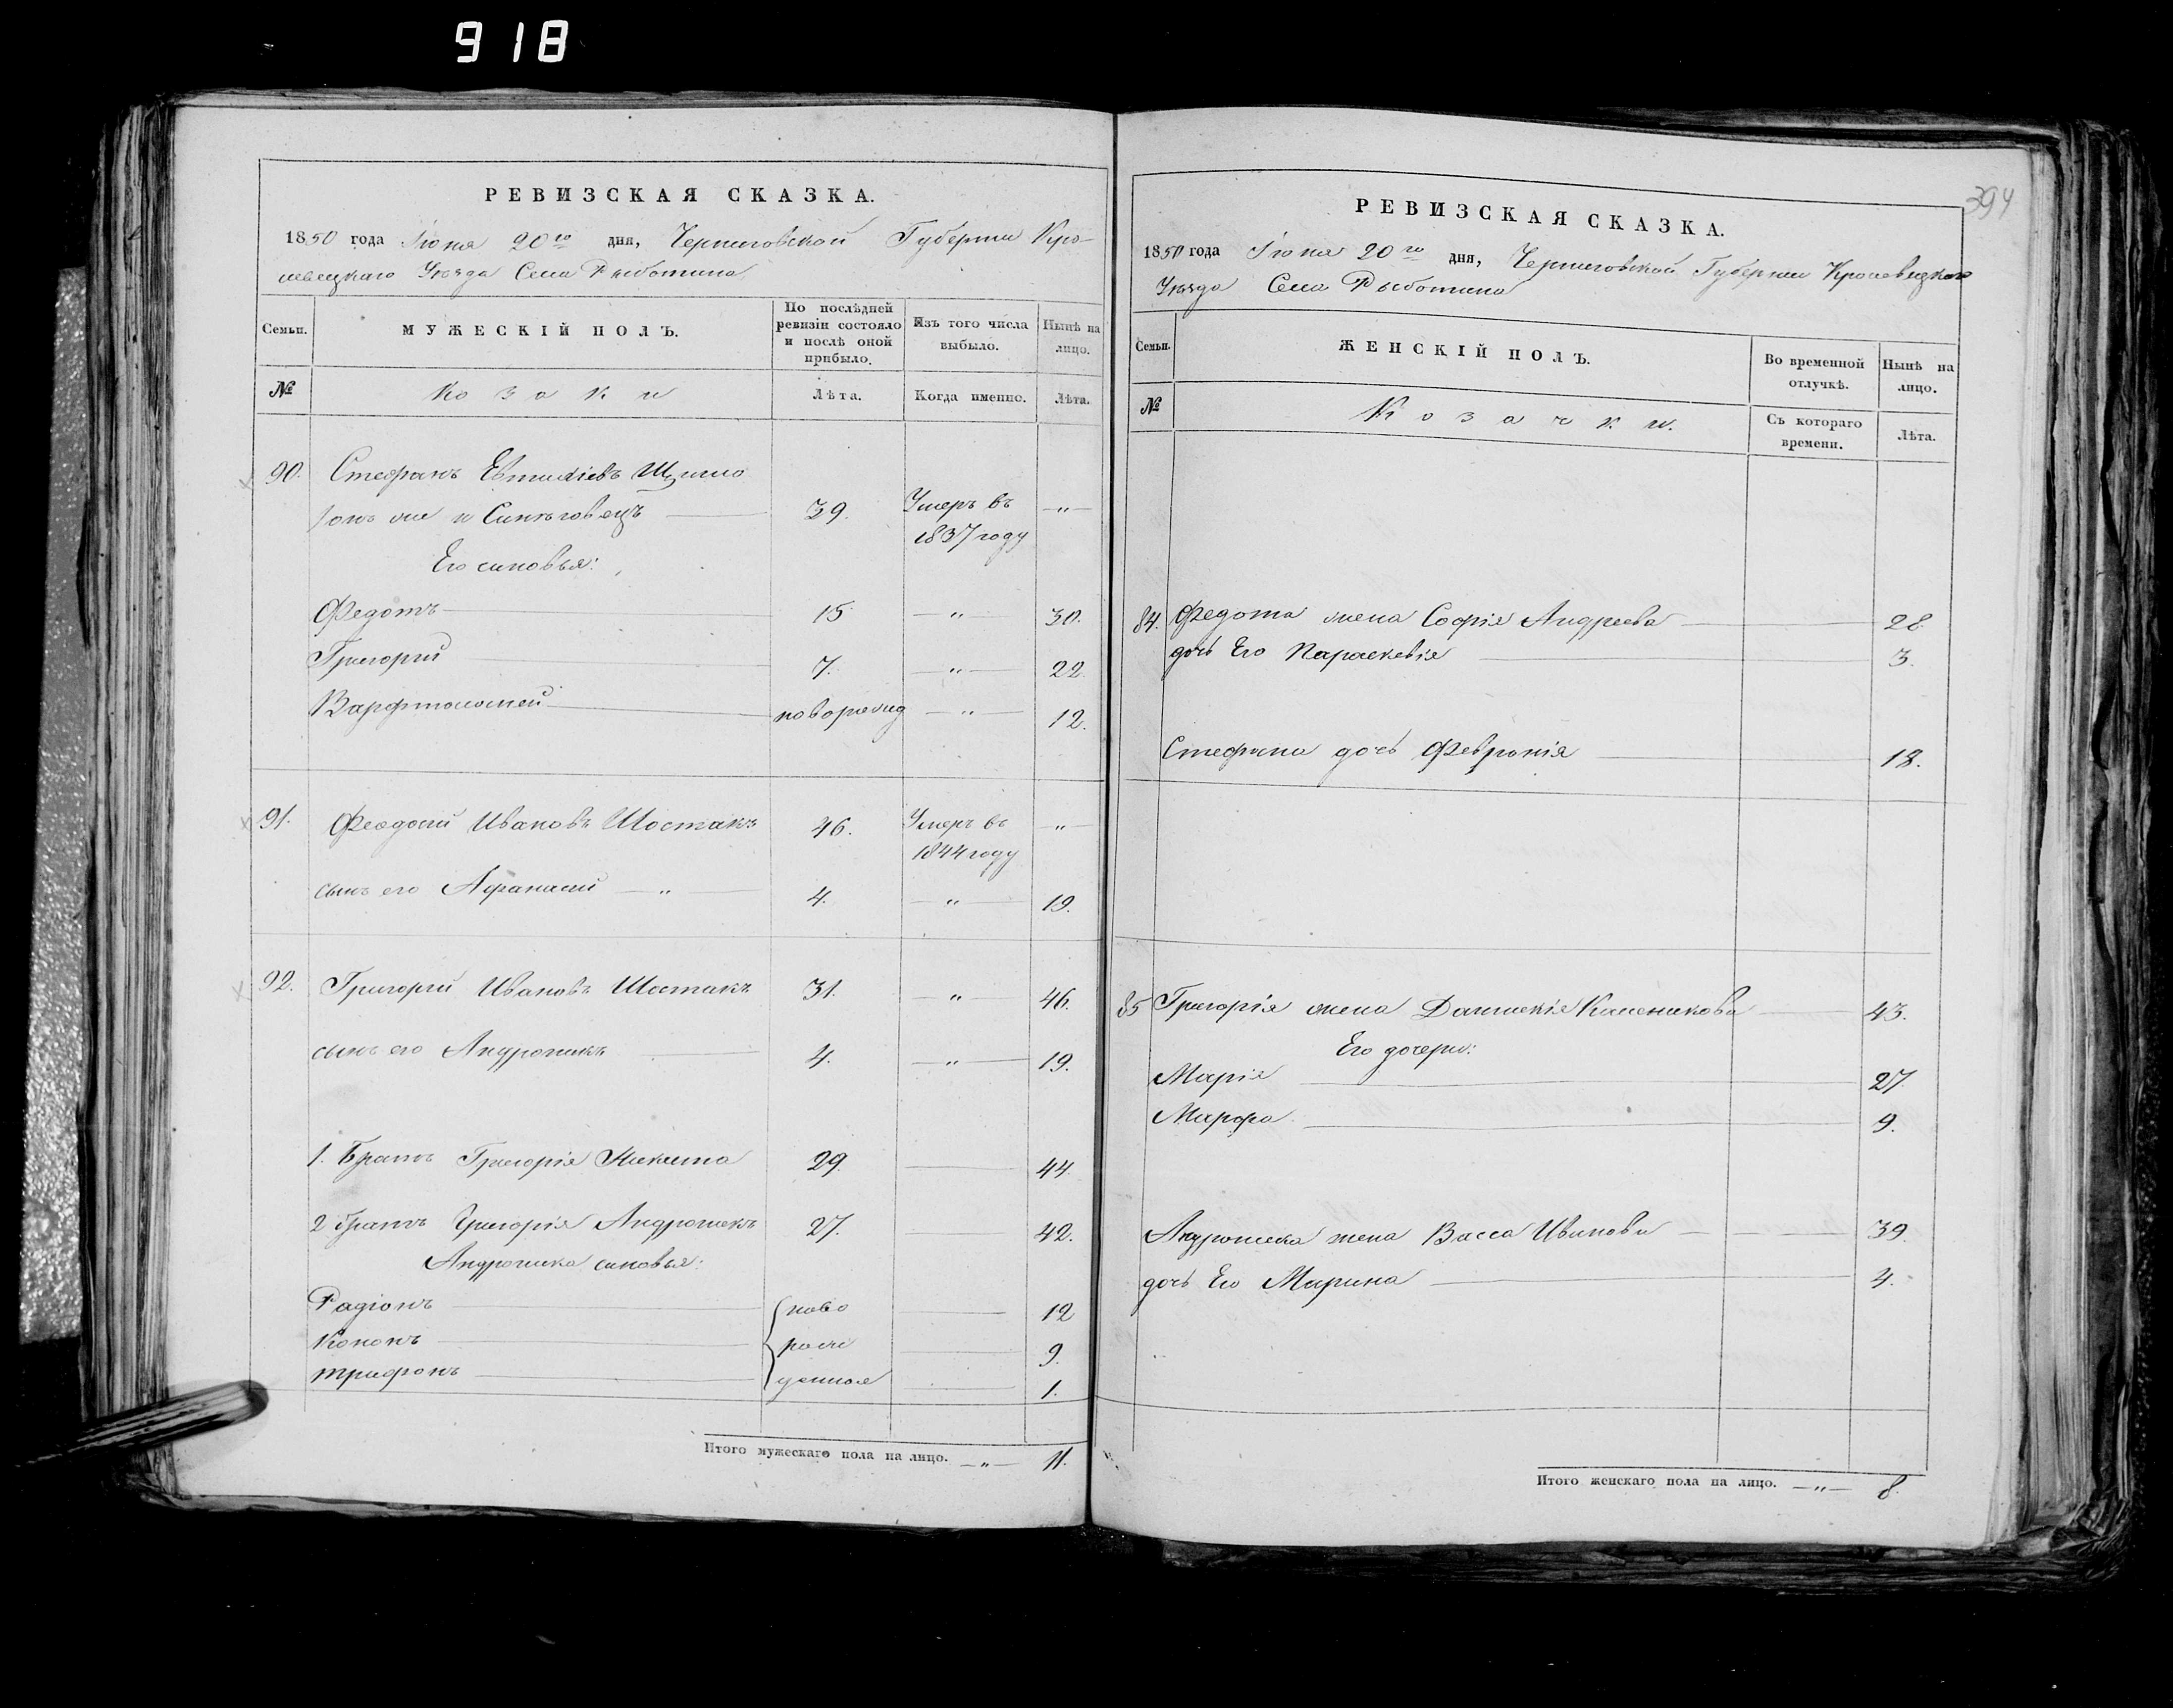 918
РЕВИЗСКАЯ СКАЗКА.
1850 года Іюня 20го дня, Черниговской Губерніи Кро-
левецкаго Уѣзда Села Рыботина
Семьи.
МУЖЕСКІЙ ПОЛЪ.
По послѣдней ревизіи состояло и послѣ оной прибыло.
Изъ того числа выбыло.
Нынѣ на лицо.
№
Козаки
Лѣта.
Когда именно.
Лѣта.
90. Стефанъ Евтихіевъ
онъ же и Синяговецъ 39. Умеръ въ 1837 году —"—
Его синовья:
Федотъ 15 —"— 30.
Григорій 7. —"— 22.
Варфтоломей новорожд —"— 12.
91. Феодосій Ивановъ Шостакъ 46. Умеръ въ 1844 году —"—
сынъ его Афанасій —"— 4. —"— 19.
92. Григорій Ивановъ Шостакъ 31. —"— 46.
сынъ его Андроникъ 4. —"— 19.
1. Братъ Григорія Никита 29. 44.
2 Братъ Григорія Андроникъ 27. 42.
Андроника синовья:
Радіонъ ново 12
Кононъ рож 9.
Трифонъ денные 1.
Итого мужескаго пола на лицо. —"— 11.
394
РЕВИЗСКАЯ СКАЗКА.
1850 года Іюня 20го дня, Черниговской Губерніи Кролевецкаго
Уѣзда Села Рыботина
Семьи.
ЖЕНСКІЙ ПОЛЪ.
Во временной отлучкѣ.
Нынѣ на лицо.
№
Козачки.
Съ котораго времени.
Лѣта.
84. Федота жена Софія Андреева 28.
дочь Его Параскевія 3.
Стефана дочь Февронія 18.
85 Григорія жена 43.
Его дочери:
Марія 27
Марфа 9.
Андроника жена Васса Иванова 39.
дочь Его Марина 4.
Итого женскаго пола на лицо. —"— 8.